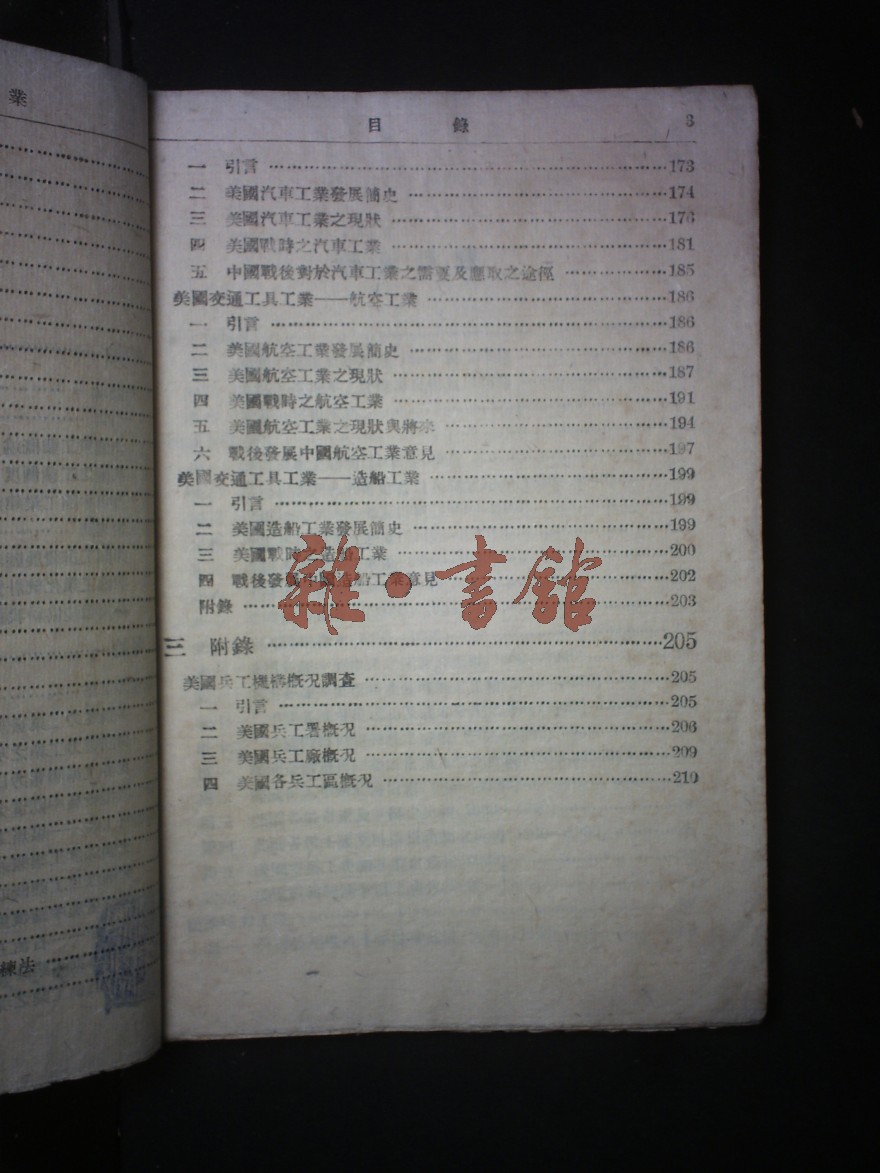 業
目 錄 3
一 引言 173
二 美國汽車工業發展簡史 174
三 美國汽車工業之現狀 176
四 美國戰時之汽車工業 181
五 中國戰後對於汽車工業之需要及應取之途徑 185
美國交通工具工業——航空工業 186
一 引言 186
二 美國航空工業發展簡史 186
三 美國航空工業之現狀 187
四 美國戰時之航空工業 191
五 美國航空工業之現狀與將來 194
六 戰後發展中國航空工業意見 197
美國交通工具工業——造船工業 199
一 引言 199
二 美國造船工業發展簡史 199
三 美國戰時之造船工業 200
四 戰後發展中國造船工業意見 202
附錄 203
雜·書館
三 附錄 205
美國兵工機構概況調查 205
一 引言 205
二 美國兵工署概況 206
三 美國兵工廠概況 209
四 美國各兵工區概況 210
煉法